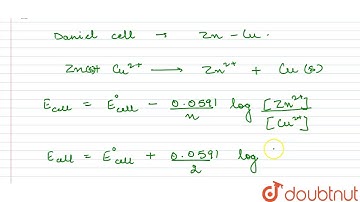 Daniel cell → Zn - Cu.
Zn(s) + Cu²⁺ ⟶ Zn²⁺ + Cu (s)
E cell = E° cell - 0.0591/n log [Zn²⁺]/[Cu²⁺]
E cell = E° cell + 0.0591/2 log [
doubtnut